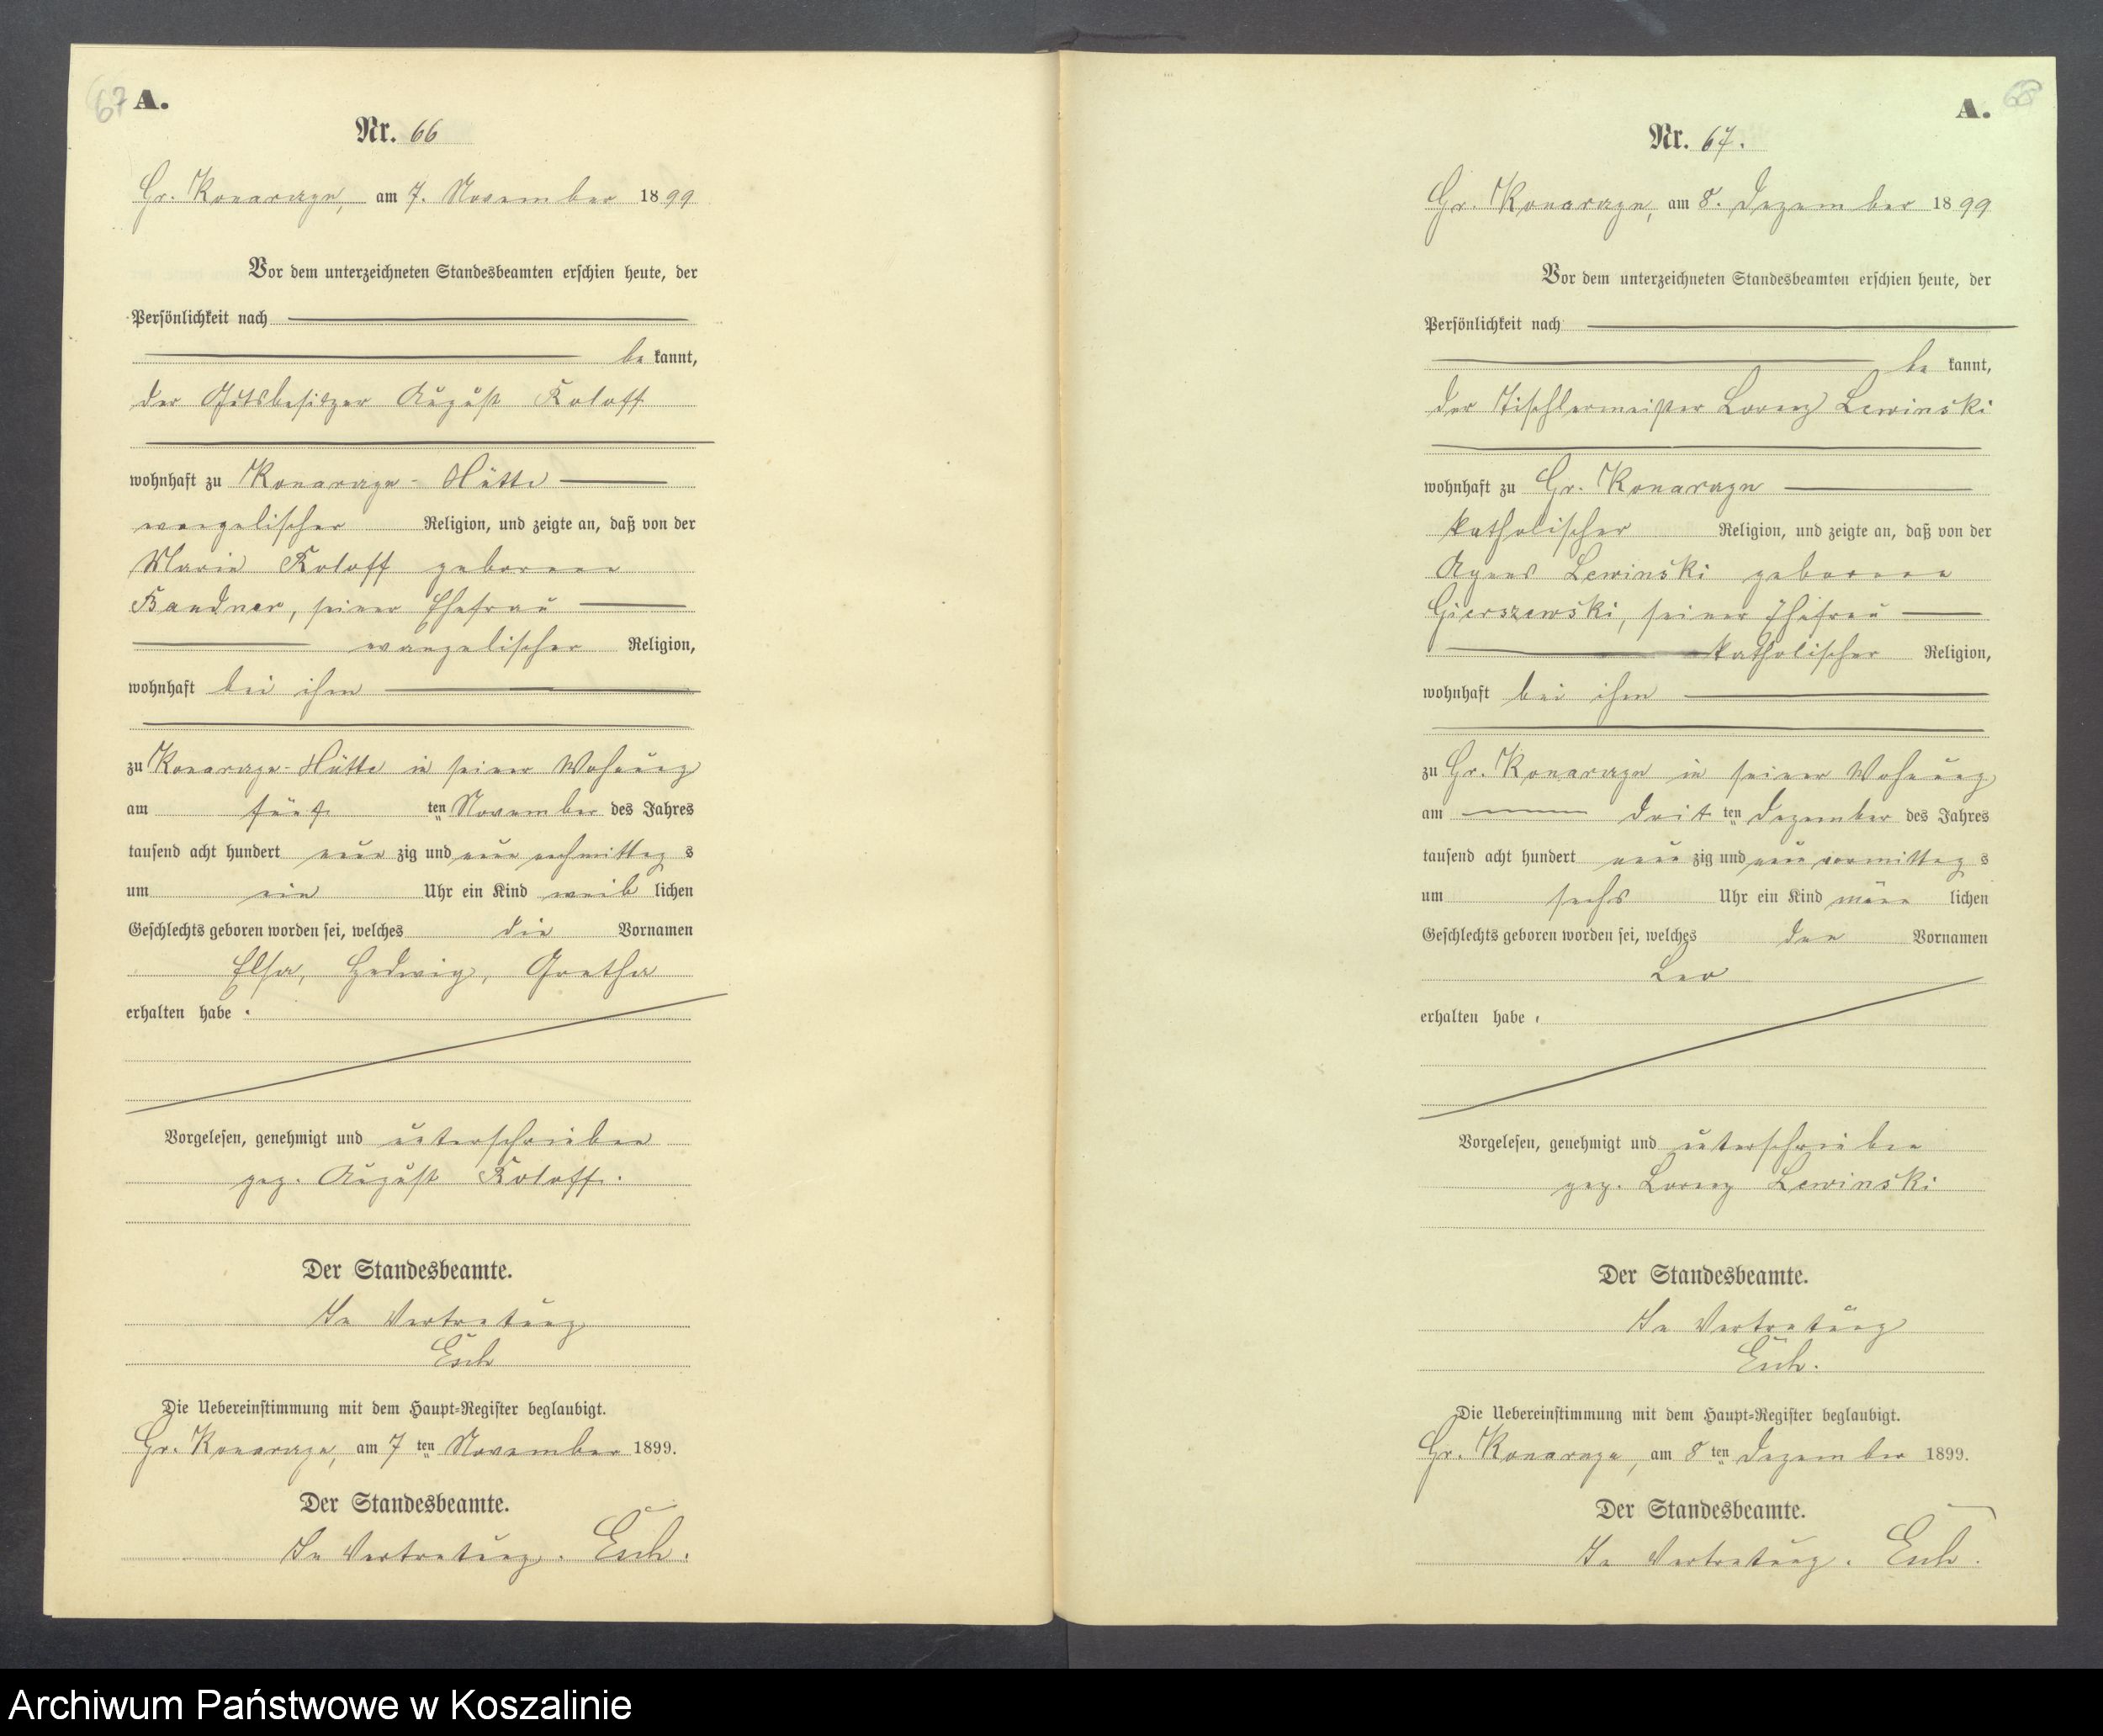 67 A.
Nr. 66
Gr. Konarczyn, am 7. November 1899
Vor dem unterzeichneten Standesbeamten erschien heute, der
Persönlichkeit nach
be kannt,
der Gutsbesitzer August
wohnhaft zu Konarczyn-Hütte
evangelischer Religion, und zeigte an, daß von der
Marie geborenen
seiner Ehefrau
evangelischer Religion,
wohnhaft bei ihm
zu Konarczyn-Hütte in seiner Wohnung
am fünf ten November des Jahres
tausend acht hundert neun zig und neun nachmittag s
um ein Uhr ein Kind weib lichen
Geschlechts geboren worden sei, welches die Vornamen
Elsa, Hedwig, Gretha
erhalten habe.
Vorgelesen, genehmigt und unterschrieben
gez. August
Der Standesbeamte.
In Vertretung
Esch
Die Uebereinstimmung mit dem Haupt-Register beglaubigt.
Gr. Konarczyn, am 7 ten November 1899.
Der Standesbeamte.
In Vertretung. Esch.
A. 68
Nr. 67.
Gr. Konarczyn, am 8. Dezember 1899
Vor dem unterzeichneten Standesbeamten erschien heute, der
Persönlichkeit nach
be kannt,
der Tischlermeister Lorenz Lewinski
wohnhaft zu Gr. Konarczyn
katholischer Religion, und zeigte an, daß von der
Agnes Lewinski geborenen
Gierszewski, seiner Ehefrau
katholischer Religion,
wohnhaft bei ihm
zu Gr. Konarczyn in seiner Wohnung
am dritten Dezember des Jahres
tausend acht hundert neun zig und neun vormittag s
um sechs Uhr ein Kind männ lichen
Geschlechts geboren worden sei, welches den Vornamen
Leo
erhalten habe.
Vorgelesen, genehmigt und unterschrieben
gez. Lorenz Lewinski
Der Standesbeamte.
In Vertretung
Esch.
Die Uebereinstimmung mit dem Haupt-Register beglaubigt.
Gr. Konarczyn, am 8 ten Dezember 1899.
Der Standesbeamte.
In Vertretung. Esch.
Archiwum Państwowe w Koszalinie